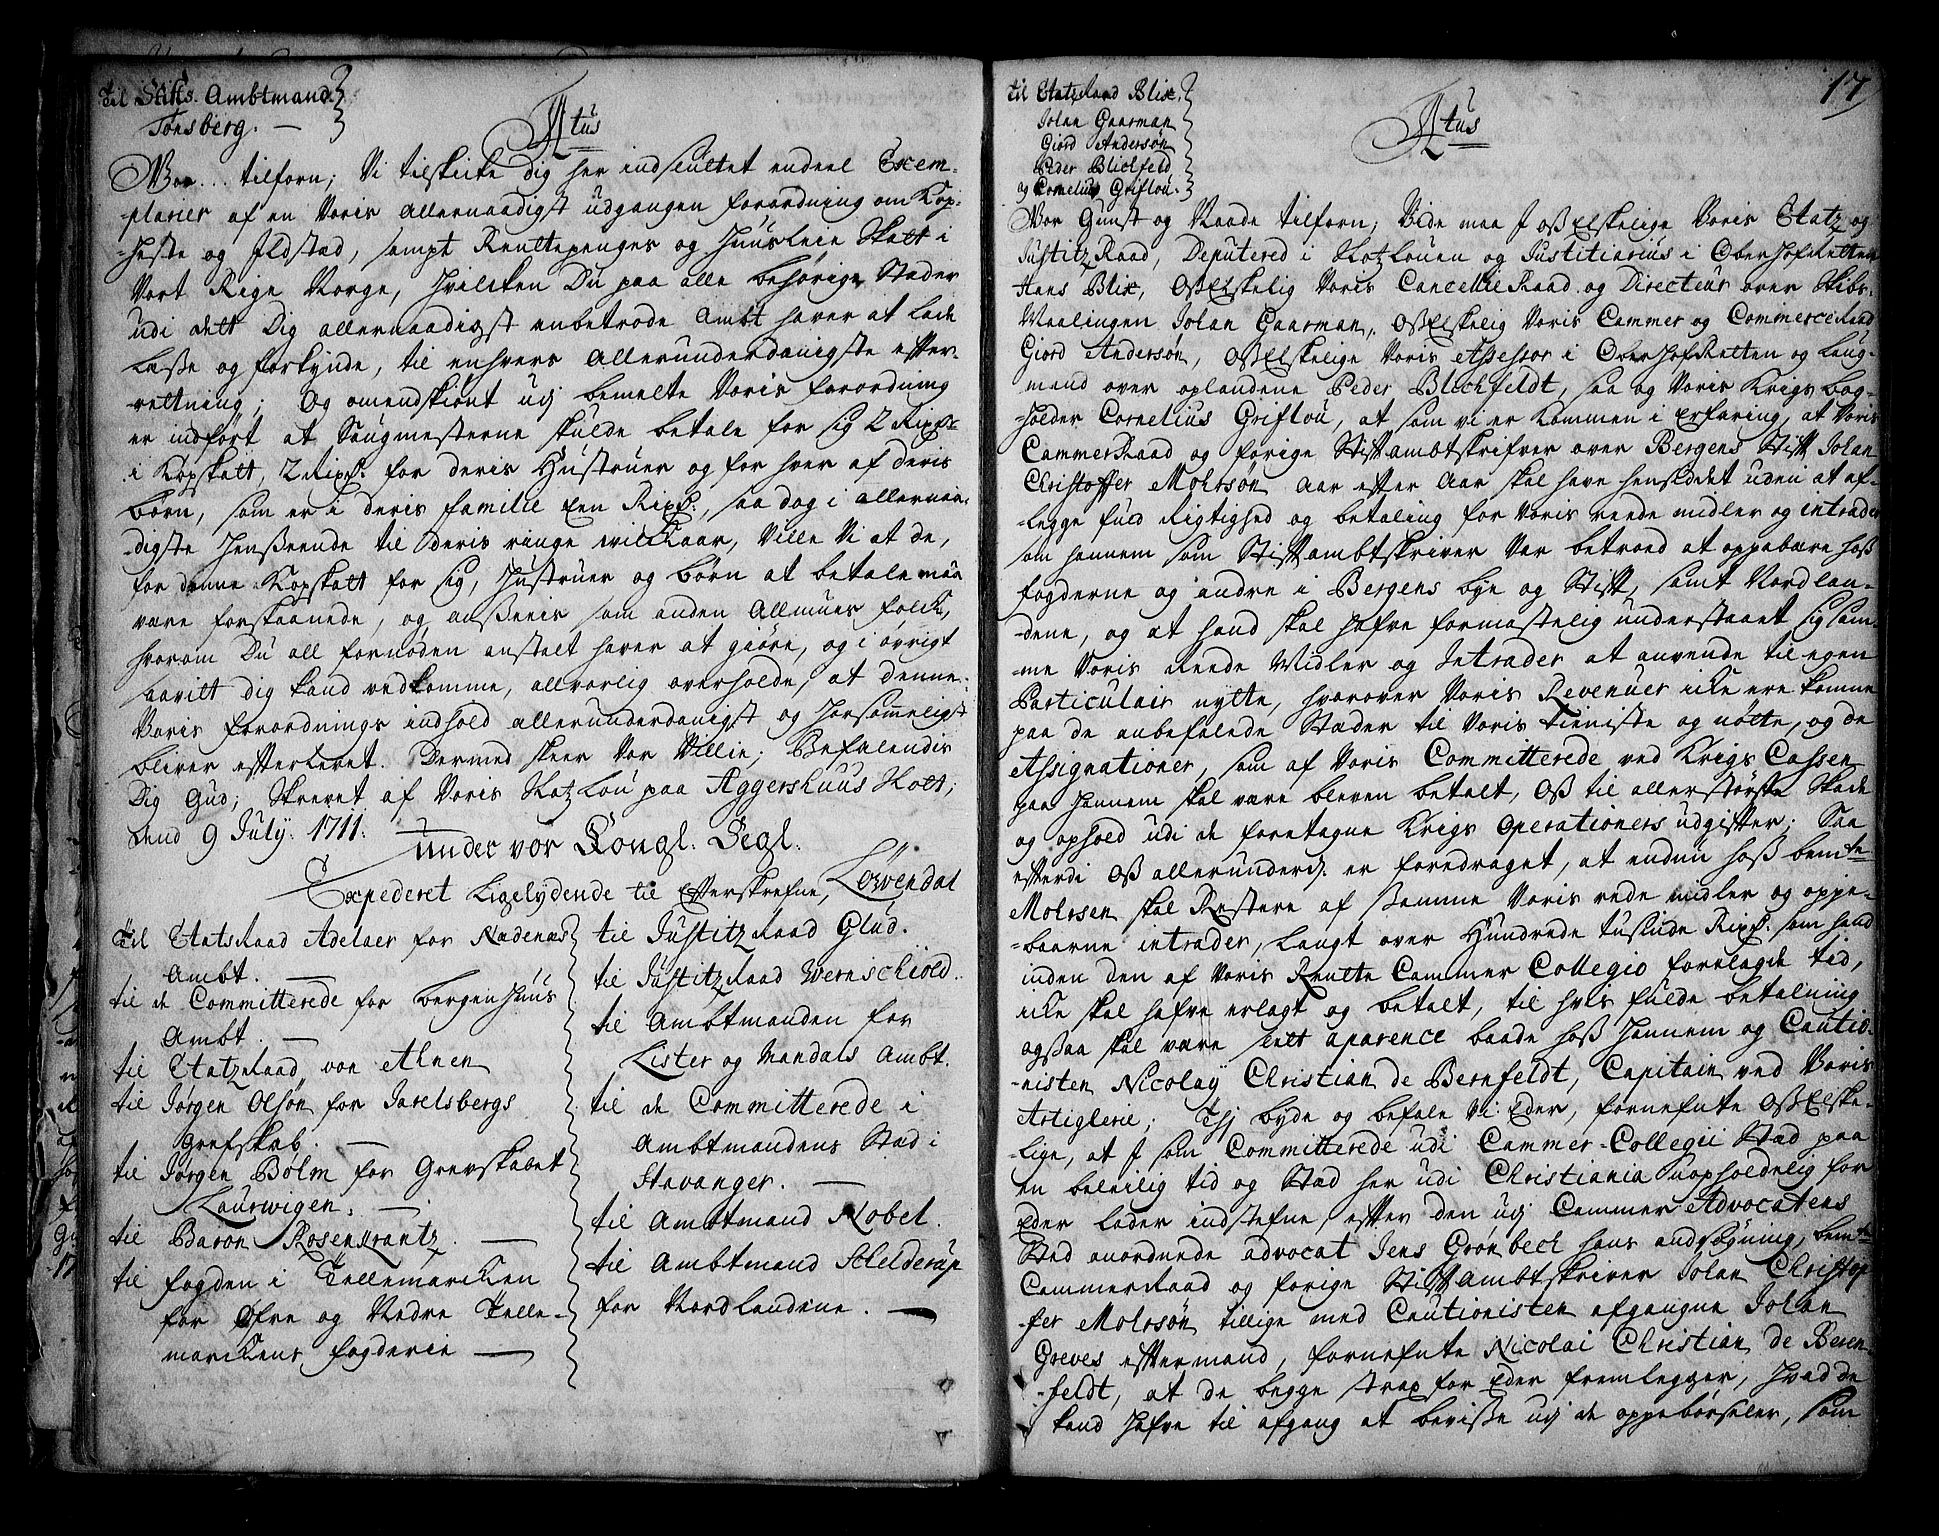 Til Stifts Ambtmand
Tonsberg. —
Atus
Vor... tilforn; Vi tilskicke dig her indsluttet endeel Exem-
-plarier af en Voris Allernaadigst udgangen forordning om Kop,
Heste og Ildstæd, sampt Renttepenges og Huusleie Skatt i
Vort Rige Norge, hvilcken Du paa alle behørige Stæder
udi dett Dig allernaadigst anbetrode Ambt haver at lade
læse og forkynde, til enhvers Allerunderdanigste efter-
-rettning; Og omendskiønt udj bemelte Voris forordning
er indført at Saugmesterne skulde betale for sig 2 Rixdr
i Kopskatt, 2 Rixdr. for deris Hustruer og for hver af deris
børn, som er i deris familie een Rixdr., saa dog i allernaa-
-digste Henseende til deris ringe willkaar, Ville Vi at de,
for denne Kopskatt for sig, Hustruer og børn at betale maa
være forskaanede, og ansees som anden Allmues folck,
hvorom Du all fornøden anstalt haver at giøre, og i øvrigt
saavitt dig kand vedkomme, allvorlig overholde, at denne
Voris forordnings indhold allerunderdanigst og Horsommeligst
bliver efterlevet. Dermed skeer Vor Villie; Befalendis
Dig Gud; Skrevet af Voris Slotzlou paa Aggershuus Slott;
dend 9 July. 1711.
under vor Kongl. Segl.
Expederet Ligelydende til Efterskrefne, Løvendal
Til Etatsraad Adelaer for Nedenæs
Ambt. —
til de Committerede for bergenhuus
Ambt. —
til Etatzraad von Ahnen
til Jørgen Olsøn for Jarelsbergs
Grefskab. —
til Jørgen Bolm for Grevskabet
Laurwigen. —
til Baron Rosenkrantz. —
til fogden i Tellemarcken
for Øfre og Nedre Telle-
marckens fogderie —
til Justitzraad Glud.
til Justitzraad Wernschiold.
til Ambtmanden for
Lister og Mandals Ambt.
til de Committerede i
Ambtmandens Stæd i
Stavanger. —
til Ambtmand Nobel.
til Ambtmand Schelderup
for Nordlandene. —
17
til Etatzraad Blix.
Johan Gaarman
Giord Andersøn
Peder Blichfeld
og Cornelius Griflou.
Atus
Vor Gunst og Naade tilforn; Vide maa I oss Elskelige Voris Etatz og
JustitzRaad, Deputered i Slotzlouen og Justitiarius i OberHofRetten
Hans Blix, OssElskelig Voris CancellieRaad og Directeur over Skibs-
Maalingen Johan Gaarman, OssElskelig Voris Cammer og CommerceRaad
Giord Andersøn, OssElskelige Voris Assessor i OberHofRetten og Laug-
mand over oplandene Peder Blichfeldt, saa og Voris Krigs bog-
-holder Cornelius Griflou, at som vi er kommen i Erfaring, at Voris
CammerRaad og forige Stiftambtskrifver over Bergens Stift Johan
Christoffer Mohrsøn Aar efter Aar skal have hensiddet uden at af-
-legge fuld Rigtighed og betaling for Voris reede midler og intrader
som hannem som Stiftambtskriver Var betroed at oppebære hoss
fogderne og andre i Bergens bye og Stift, samt Nordlan-
-dene, og at hand skal hafve formastelig understaaet sig sam-
-me Voris Reede Midler og Intrader at anvende til egen
Particulair nytte, hvorover Voris Revenuer icke ere komne
paa de anbefalede Stæder til Voris tieniste og nøtte, og de
Assignationer, som af Voris Committerede ved Krigs Cassen
paa Hannem skal være bleven betalt, Oss til allerstørste Skade
og ophold udi de foretagne Krigs operationers udgifter; Saa
efterdi Oss allerunderd. er foredraget, at endnu hoss bemte
Mohrsen skal Restere af samme Voris rede midler og oppe-
-baarne intrader, Langt over Hundrede tusinde Rixdr. som hand
inden den af Voris Rentte Cammer Collegio forelagde tid,
icke skal hafve erlagt og betalt, til hvis fulde betalning
ogsaa skal være slett aparence baade hoss Hannem og Cautio-
-nisten Nicolay Christian de Bernfeldt, Capitain ved Voris
Artiglerie; Thj byde og befale Vi Eder, fornefnte OssElske-
-lige, at I som Committerede udi Cammer-Collegii Stæd paa
en beleilig tid og Stæd her udi Christiania uopholdelig for
Eder lader indstefne, efter den udj Cammer Advocatens
Stæd anordnede advocat Jens Grønbech hans andsøgning, bemte
CammerRaad og forige StiftAmbtskriver Johan Christof-
-fer Mohrsøn tillige med Cautionisten afgangne Johan
Greves eftermand, fornefnte Nicolai Christian de Beren
-feldt, at de begge strax for Eder fremlegger, Hvad de
kand Hafve til afgang at bevisse udj de oppebørseler, som